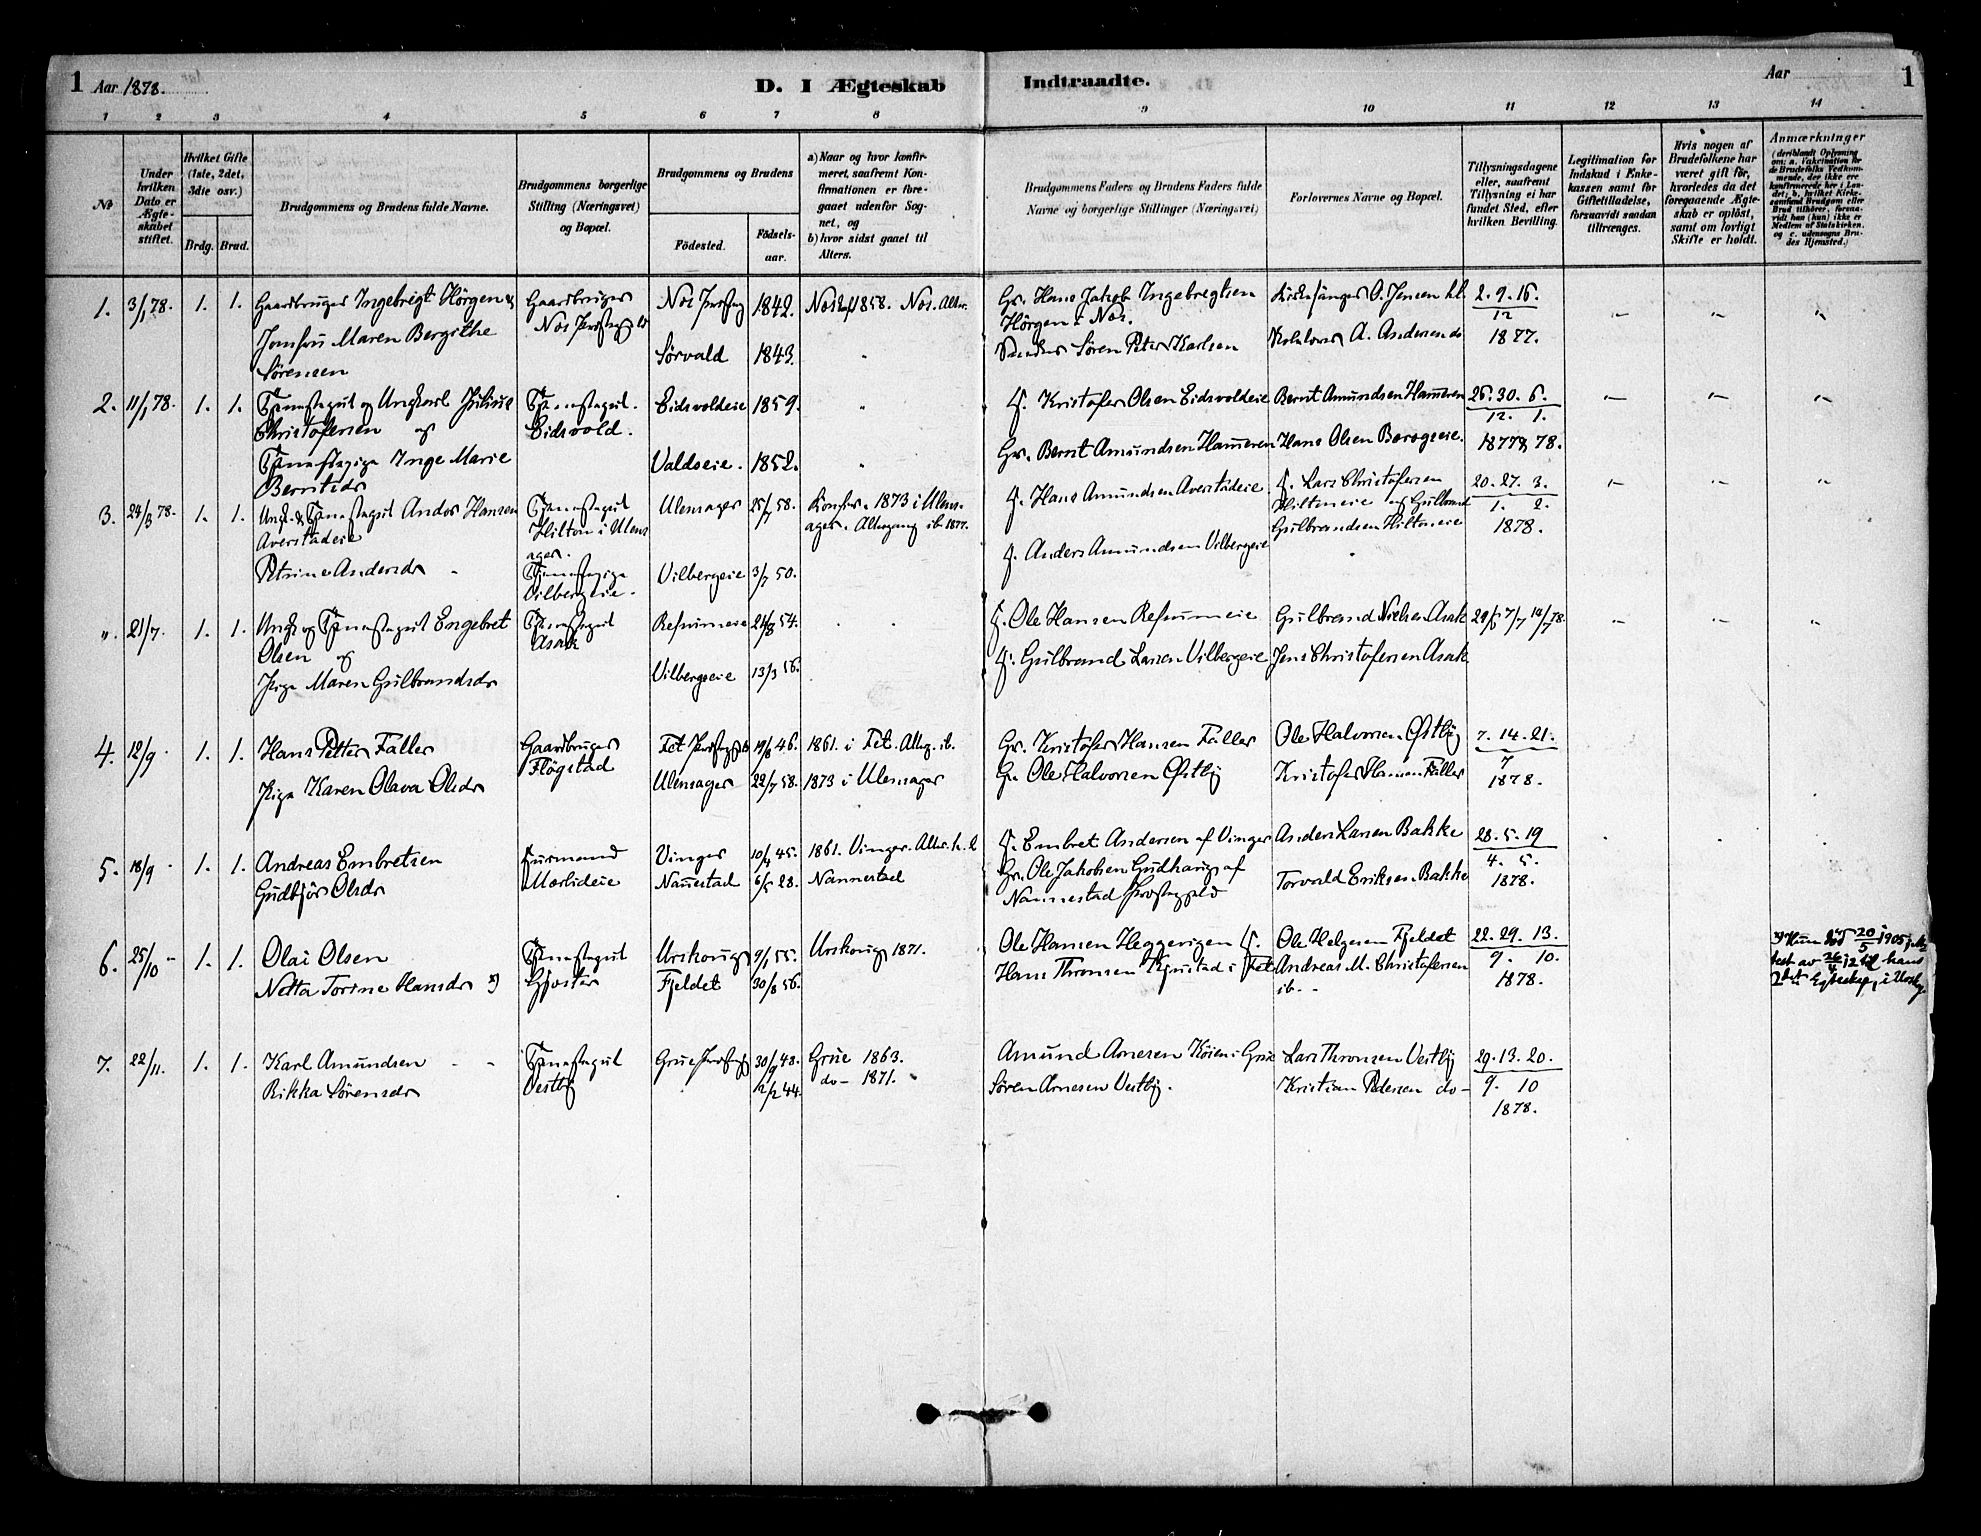 1 Aar 1878.
D. I Ægteskab Indtraadte.
Aar 1
1 2 3 4 5 6 7 8 9 10 11 12 13 14
No
Under hvilken Dato er Ægteskabet stiftet.
Hvilket Gifte (1ste, 2det, 3die osv.)
Brdg. Brud.
Brudgommens og Brudens fulde Navne.
Brudgommens borgerlige Stilling (Næringsvei) og Bopæl.
Brudgommens og Brudens
Födested. Födsels-aar.
a) Naar og hvor konfirmeret, saafremt Konfirmationen er foregaaet udenfor Sognet, og
b) hvor sidst gaaet til Alters.
Brudgommens Faders og Brudens Faders fulde Navne og borgerlige Stillinger (Næringsvei)
Forlovernes Navne og Bopæl.
Tillysningsdagene eller, saafremt Tillysning ei har fundet Sted, efter hvilken Bevilling.
Legitimation for Indskud i Enkekassen samt for Giftetilladelse, forsaavidt saadan tiltrænges.
Hvis nogen af Brudefolkene har været gift för, hvorledes da det foregaaende Ægteskab er oplöst, samt om lovligt Skifte er holdt.
Anmærkninger
1. 3/1 78. 1. 1. Gaardbruger Ingebrigt Hörgen &
Jomfru Maren Bergithe
Sörensen
Gaardbruger
1842. 1858.
Sörvald 1843.
Gr. Hans Jakob Ingebregtsen
Hörgen i Nes.
Sören Peter Karlsen
Kirkesanger O. Jensen
A. Andersen do
2. 9. 16.
12
1877.
2. 11/1 78. 1. 1. Tjenestegut og Ungkarl Julius
Christofersen og
Tjenestepige Inge Marie
Berntsdr
Tjenestegut.
Eidsvold.
Eidsvoldeie 1859.
Valdseie. 1852.
Kristofer Olsen Eidsvoldeie
Gr. Bernt Amundsen Hameren
Bernt Amundsen Hameren
Hans Olsen Borogseie.
26. 30. 6.
12. 1.
1877 & 78.
3. 24/3 78. 1. 1. Ungk. & Tjenestegut Andor Hansen
Averstadeie
Petrine Andersdr
Tjenestegut
Hilton i Ulens
ager.
Tjenestepige
Vilbergeie.
Ulensager 25/7 58.
Vilbergeie 3/7 50.
Konfir. 1873 i Ulens-
ager. Altergang ib. 1877.
Hans Amundsen Averstadeie
Anders Amundsen Vilbergeie
Lars Christofersen
Hiltoneie og Gulbrand
Gulbrandsen Hiltoneie
20. 27. 3.
1. 2.
1878.
". 21/7. 1. 1. Ungk og Tjenestegut Engebret
Olsen og
Pige Maren Gulbrandsdr
Tjenestegut
Asak
Refsumeie 24/8 54.
Vilbergseie 13/3 56.
Ole Hansen Refsumeie
Gulbrand Larsen Vilbergeie
Gulbrand Nielsen Asak
Jens Christofersen Asak
7/7 14/7 78.
4. 12/9 1. 1. Hans Petter Faller
Pige Karen Olava Olsdr
Gaardbruger
Flögstad
46.
Ulensager 22/7 58.
1861. i Fet. Alterg. ib.
1873 i Ulensager
Gr. Kristofer Hansen Faller
Gr. Ole Halvorsen Østby
Ole Halvorsen Østby
Kristofer Hansen Faller
7. 14. 21.
7
1878.
5. 18/9 1. 1. Andreas Embretsen
Gudbjör Olsdr
Husmand
Mælideie
Vinger 45.
Nannestad 28.
1861. Vinger.
Nannestad
Embret Andersen af Vinger
Gr. Ole Jakobsen Gudhaug af
Nannestad Præstegjeld
Anders Larsen Bakke
Torvald Eriksen Bakke
28. 5. 19
4. 5.
1878.
6. 25/10 1. 1. Olai Olsen
Netta Torine Hansdr x)
Tjenestegut
Gjöster
Urskoug 9/1 55.
Fjeldet 30/8 56.
Urskoug 1871.
Ole Hansen Heggerigen
Hans Thronsen Kjustad i Fet
Ole Helgesen Fjeldet
Andreas M. Christofersen
ib.
22. 29. 13.
9. 10.
1878.
x) Hun död 20/5 1905
test av 26/4 12 til hans
2det Egteskap, i
7. 22/11. 1. 1. Karl Amundsen
Rikka Sörensdr
Tjenestegut
Vestby
30/9 48.
12/2 44.
Grue 1863.
do 1871.
Amund Arnesen Köien i Grue
Sören Arnesen Vestby.
Lars Thronsen Vestby
Kristian Pedersen do
29. 13. 20.
9. 10
1878.